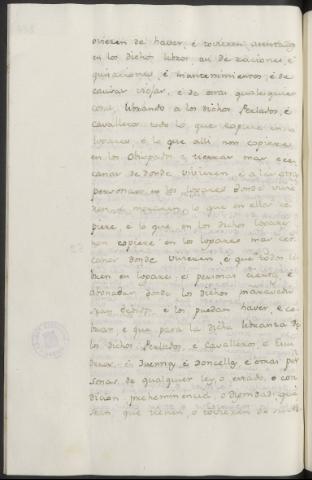 ovieren de haver, é tovieren asentados
en los dichos libros, asi de raciones, é
quitaciones, é mantenimientos, é de
cavar viejar, é de otras qualesquier
cosas, librando a los dichos Perlados, é
Cavalleros todo lo que copiere en los
lugares, e lo que alli non copiere
en los Obispados, y tierras mas cer
canas de donde vivieren, é a las otras
personas en los lugares donde vivie
ren, é moraren, lo que en ellos co
piere, e lo que en los dichos lugares
non copiere en los lugares mas cer
canos donde vivieren, é que todos li
bren en lugares, é personas ciertas, é
abonadas donde los dichos maravedis
sean ciertos, e los puedan haver, e co
brar, e que para la dicha libranza de
los dichos Perlados, e Cavalleros, e Escu
deros, é Duennas, é Doncellas, e otras per
sonas de qualquier ley, o estado, o con
dicion, preheminencia, o dignidad que
sean, que tienen, o tovieren de